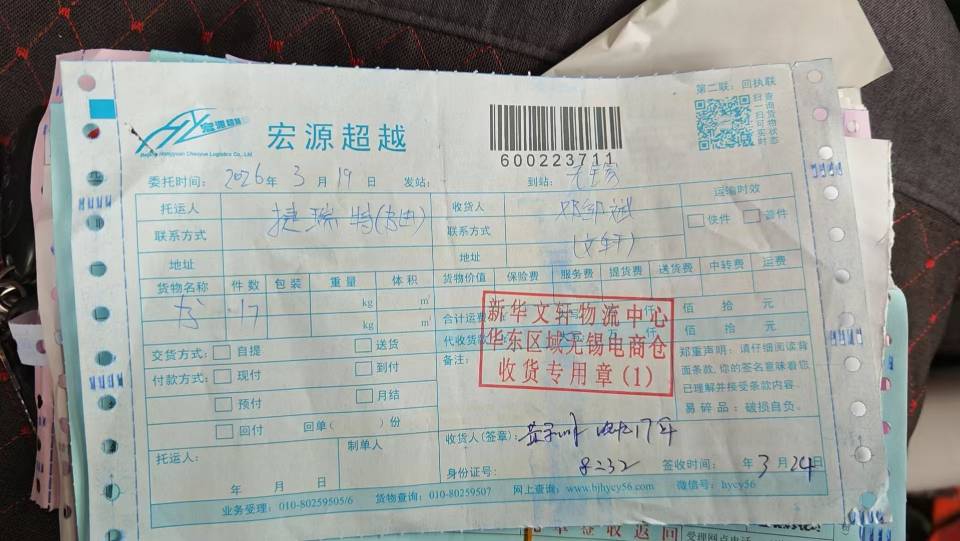 第二联：回执联
宏源超越
宏源超越
Beijing Hongyuan Chaoyue Logistics Co., Ltd
600223711
扫一扫可
查询货物
实时状态
委托时间： 2026年 3月 19日 发站： 到站： 无锡
托运人 捷瑞特 收货人 运输时效
联系方式 联系方式 快件 普件
地址 地址 (文轩)
货物名称 件数 包装 重量 体积 货物价值 保险费 服务费 提货费 送货费 中转费 运费
书 17 kg m³ 合计运费 仟 佰 拾 元
kg m³ 代收货款 仟 佰 拾 元
新华文轩物流中心
华东区域无锡电商仓
收货专用章(1)
交货方式： 自提 送货 备注：
付款方式： 现付 到付
预付 月结
回付 回单（ ）份
郑重声明：请仔细阅读背
面条款，你的签名意味着您
已理解并接受条款内容。
易碎品：破损自负。
托运人： 制单人 收货人(签章)： 收9包17件
身份证号： 8232 签收时间： 年 3月 24日
年 月 日
业务受理：010-80259505/6 货物查询：010-80259507 网上查询：www.bjhycy56.com 微信号：hycy56
签收返回
受理网点电话